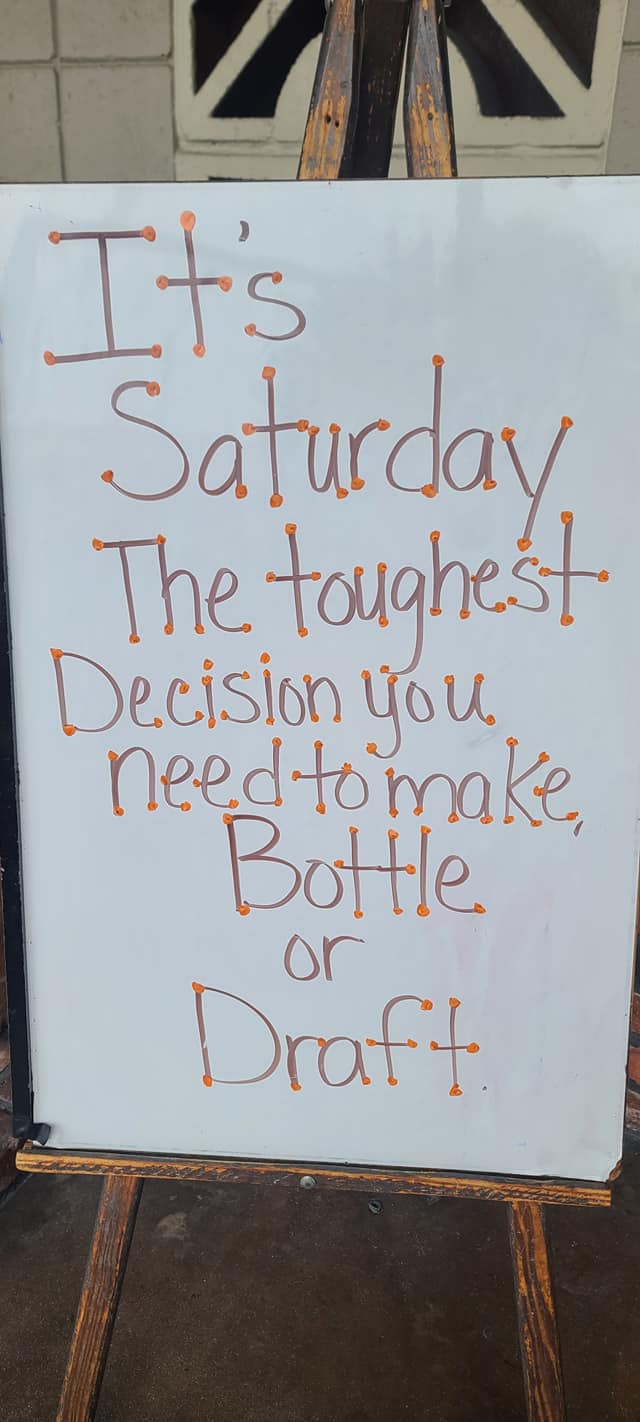 It's
Saturday
The toughest
Decision you
need to make,
Bottle
or
Draft.